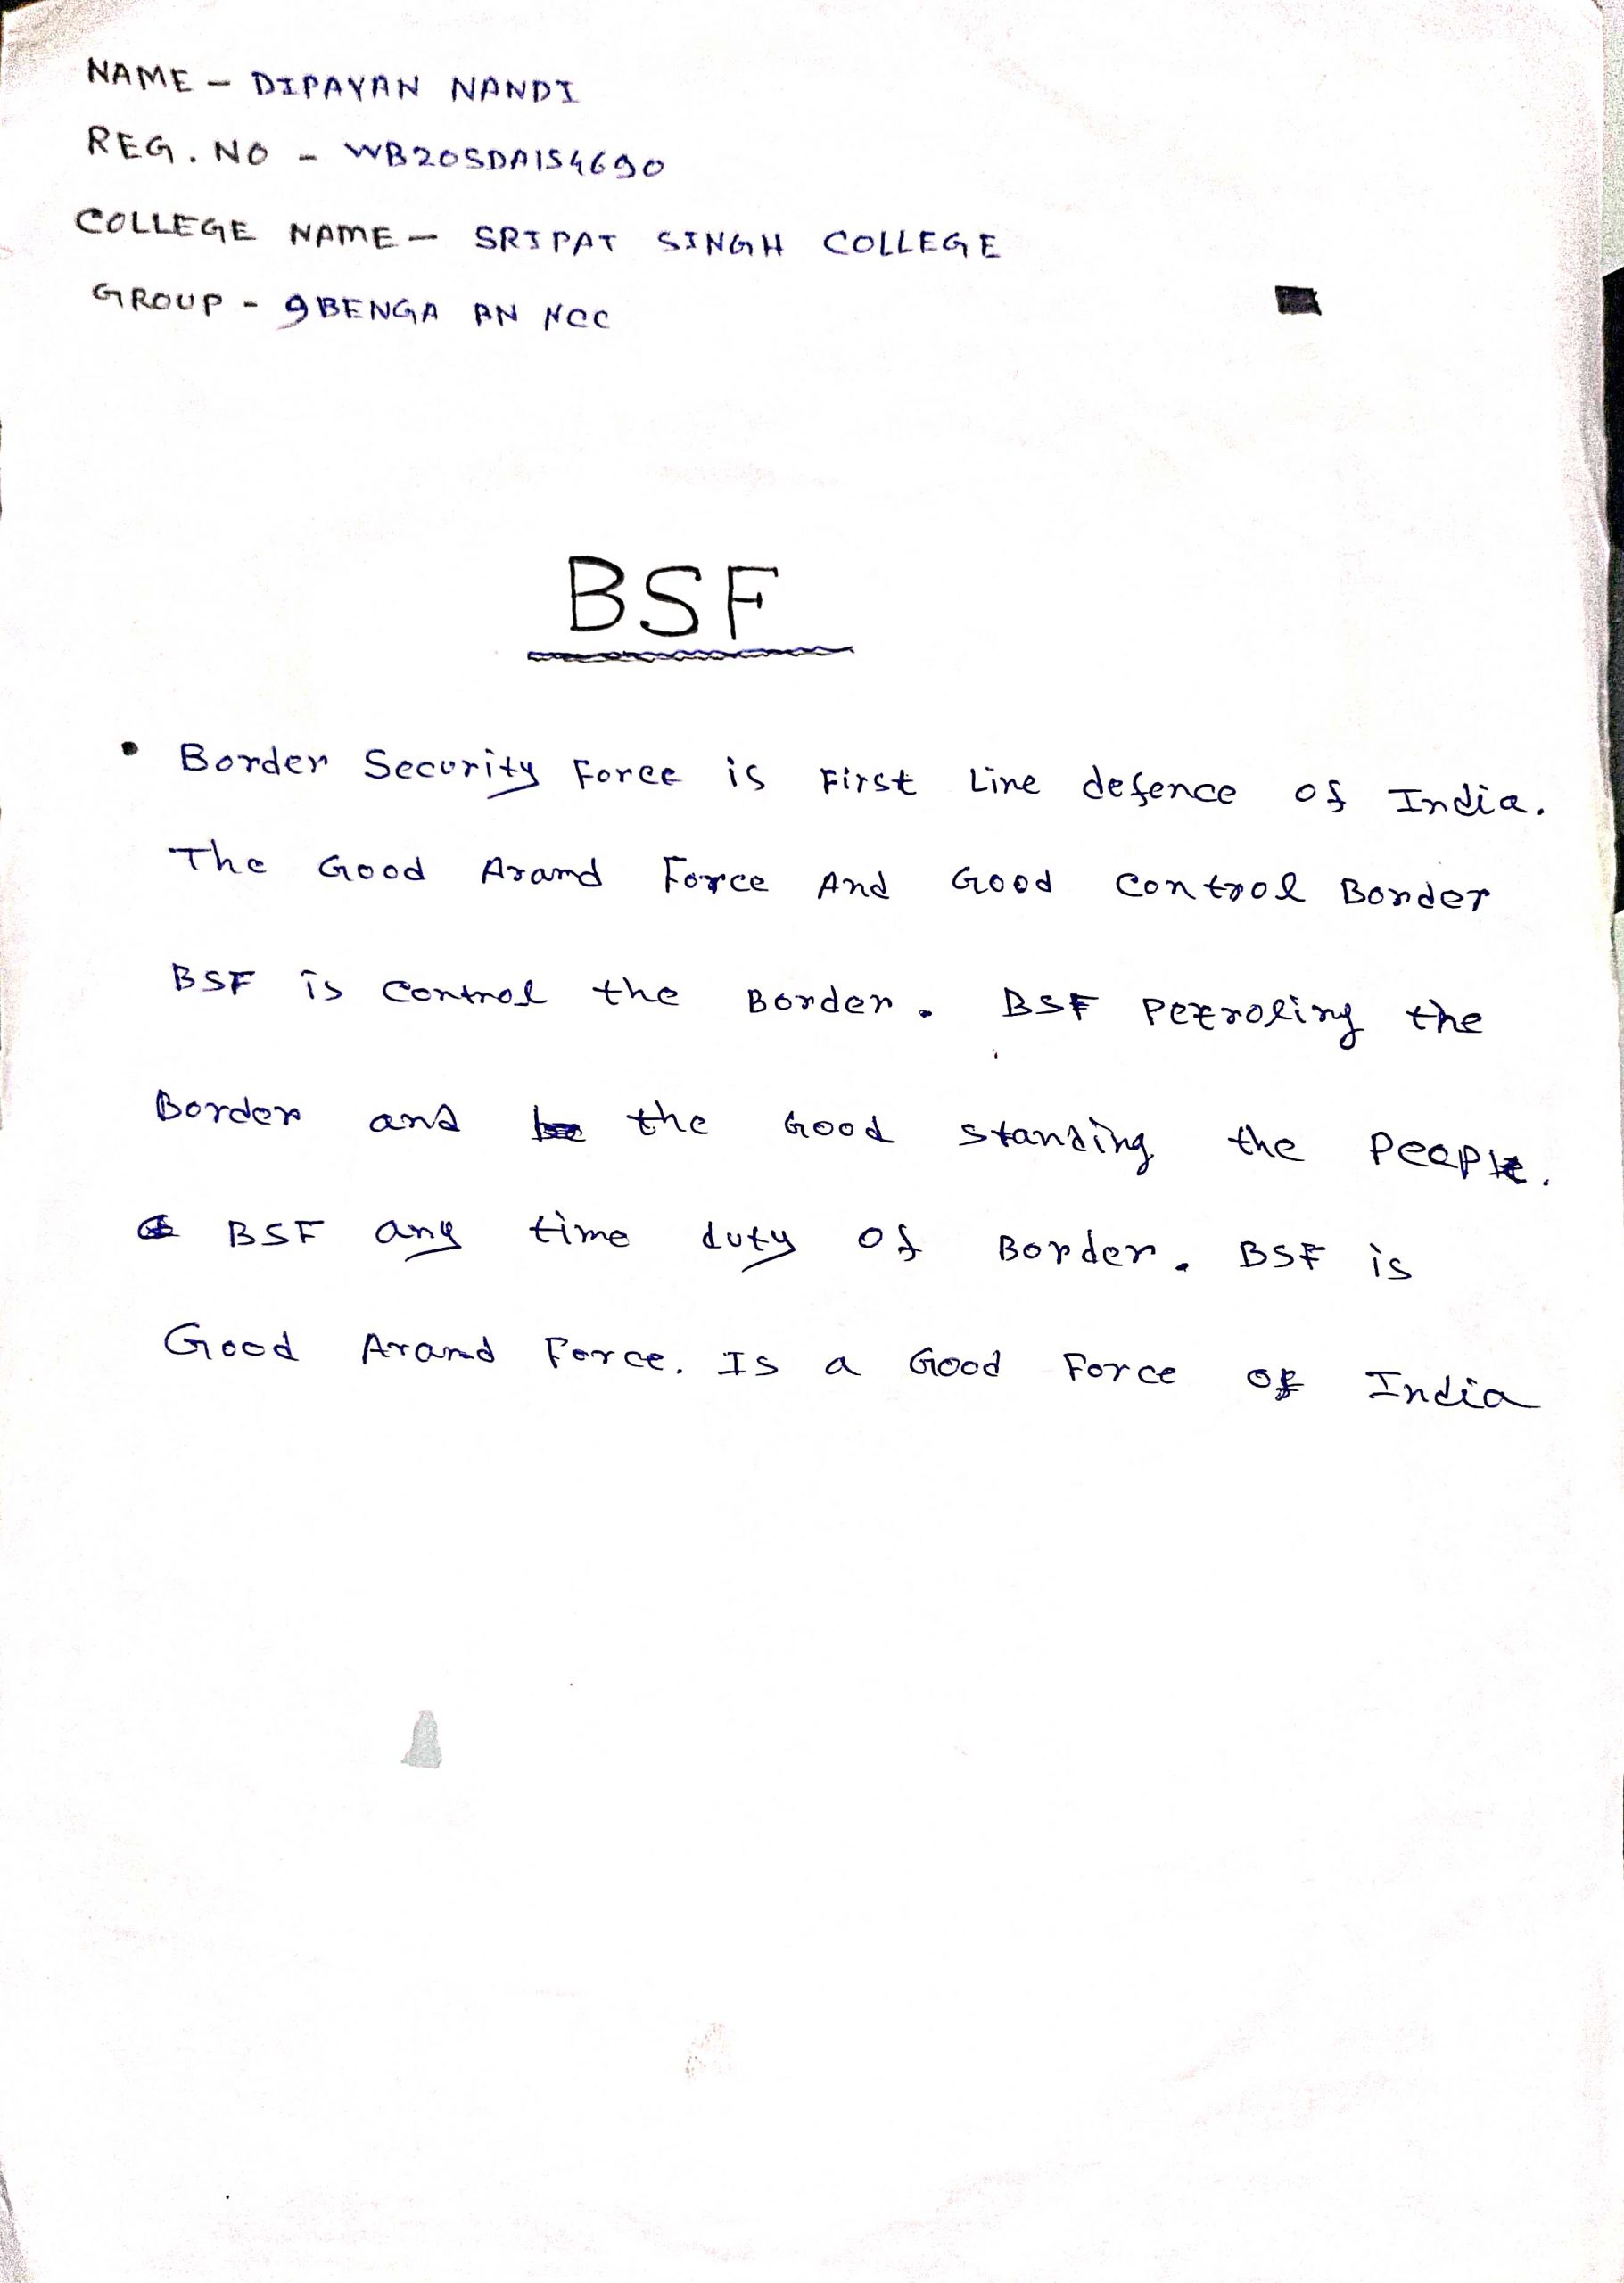 NAME - DIPAYAN NANDI
REG. NO - WB20SDA154690
COLLEGE NAME - SRIPAT SINGH COLLEGE
GROUP - 9BENGA BN NCC
BSF
• Border Security Force is First Line defence of India.
The Good Aramd Force And Good Control Border
BSF is Control the Border. BSF Petroling the
Border and the Good standing the Peaple.
BSF any time duty of Border. BSF is
Good Aramd Force. Is a Good Force of India